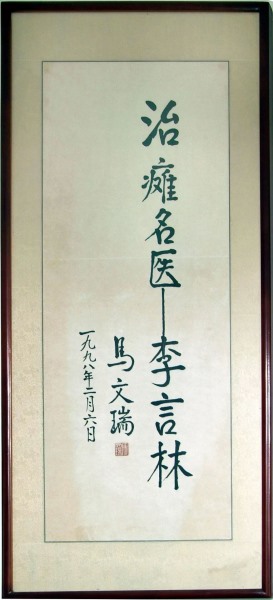 治瘫名医—李言林
马文瑞
一九九八年二月六日